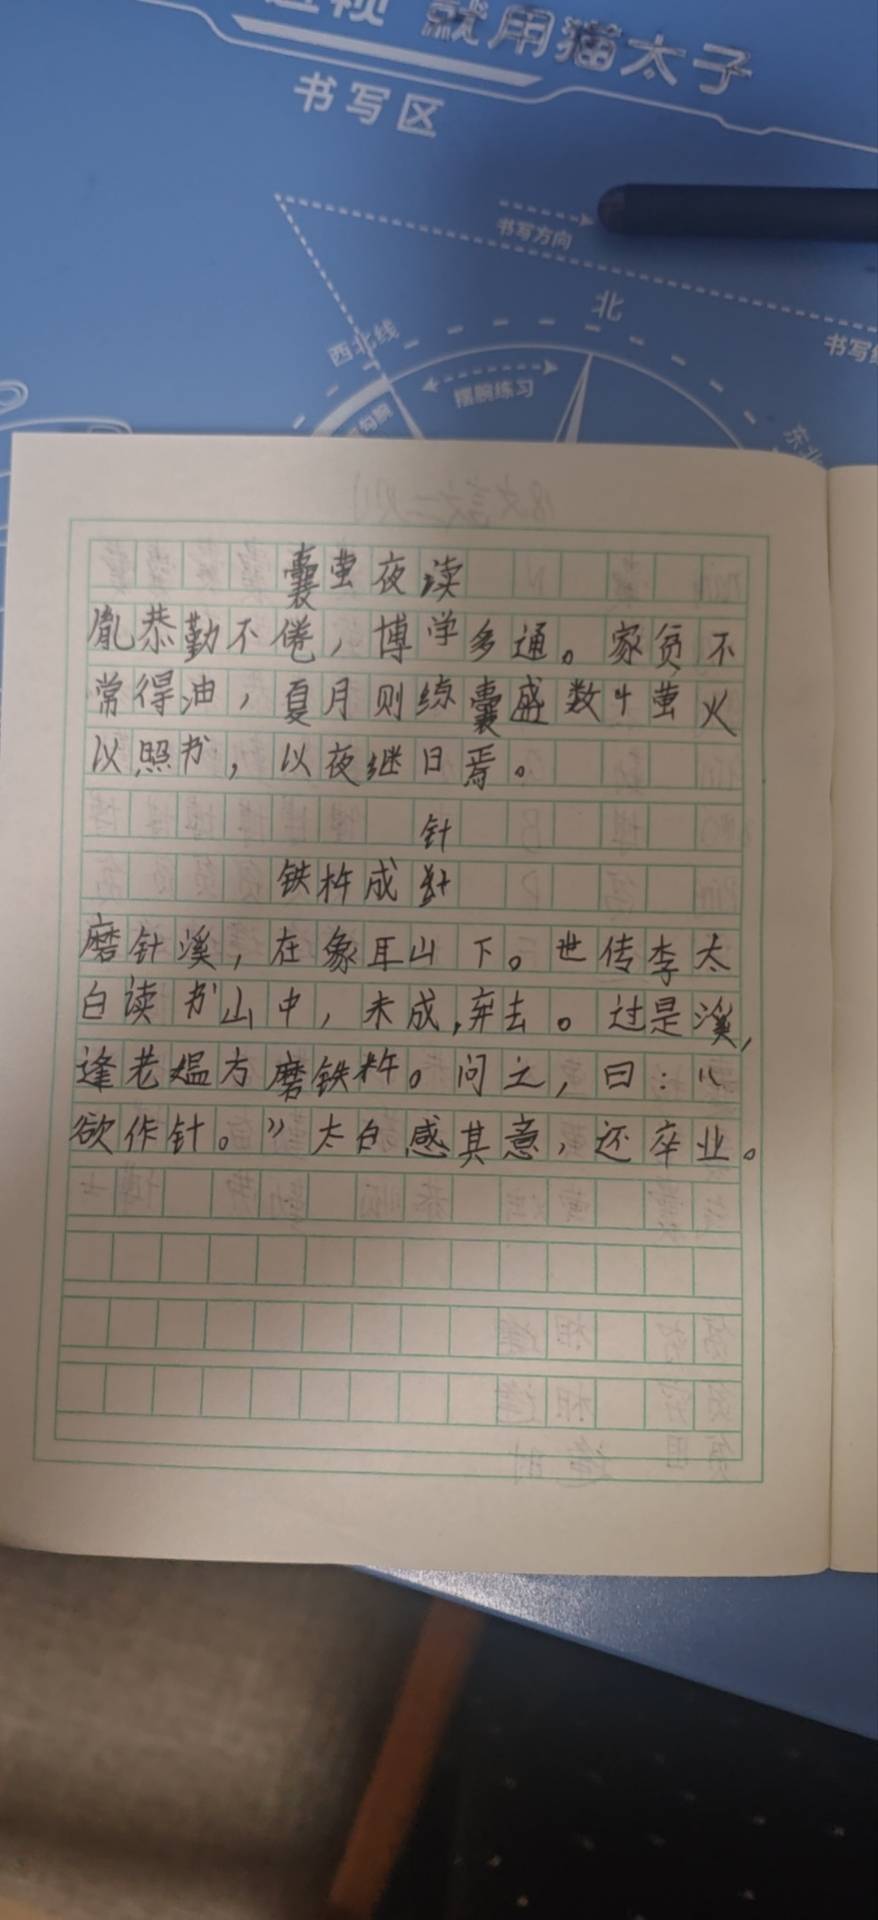 就用猫太子
书写区
书写方向
北
西北线
书写
摆腕练习
东北
囊萤夜读
胤恭勤不倦，博学多通。家贫不
常得油，夏月则练囊盛数十萤火
以照书，以夜继日焉。
针
铁杵成针
磨针溪，在象耳山下。世传李太
白读书山中，未成，弃去。过是溪，
逢老媪方磨铁杵。问之，曰：“
欲作针。”太白感其意，还卒业。